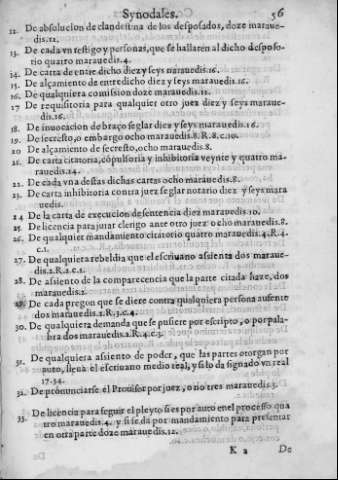 Synodales. 56
12. De absolucion de clandestina de los desposados, doze maraue-
dis.12.
13. De cada vn testigo y personas, que se hallaren al dicho desposo-
rio quatro marauedis.4.
14. De carta de entre dicho diez y seys marauedis.16.
15. De alçamiento de entredicho diez y seys marauedis.
16. De qualquiera comission doze marauedis.12.
17 De requisitoria para qualquier otro juez diez y seys maraue-
dis.16.
18. De inuocacion de braço seglar diez y seys marauedis.16.
19. De secresto, o embargo ocho marauedis.8.R.8.c.10.
20 De alçamiento de secresto, ocho marauedis.8.
21. De carta citatoria, cõpulsoria y inhibitoria veynte y quatro ma-
rauedis.24.
22. De cada vna destas dichas cartas ocho marauedis.8.
23. De carta inhibitoria contra juez seglar notario diez y seys mara
uedis.
24 De la carta de execucion de sentencia diez marauedis.10.
25. De licencia para jurar clerigo ante otro juez ocho marauedis.8.
26. De qualquier mandamiento citatorio quatro marauedis.4.R.4.
c.1.
27. De qualquiera rebeldia que el escriuano assienta dos maraue-
dis.2.R.2.c.1.
28. De assiento de la comparecencia que la parte citada haze, dos
marauedis.2.
29. De cada pregon que se diere contra qualquiera persona ausente
dos marauedis.2.R.3.c.4.
30. De qualquiera demanda que se pusiere por escripto, o por pala-
bra dos marauedis.2.R.4.c.3.
31. De qualquiera assiento de poder, que las partes otorgan por
auto, lleua el escriuano medio real, y si lo da signado vn real
17.34.
32. De pronunciarse el Prouisor por juez, o no tres marauedis.3.
33. De licencia para seguir el pleyto si es por auto en el processo qua
tro marauedis.4. y si se da por mandamiento para presentar
en otra parte doze marauedis.12.
K 2 De